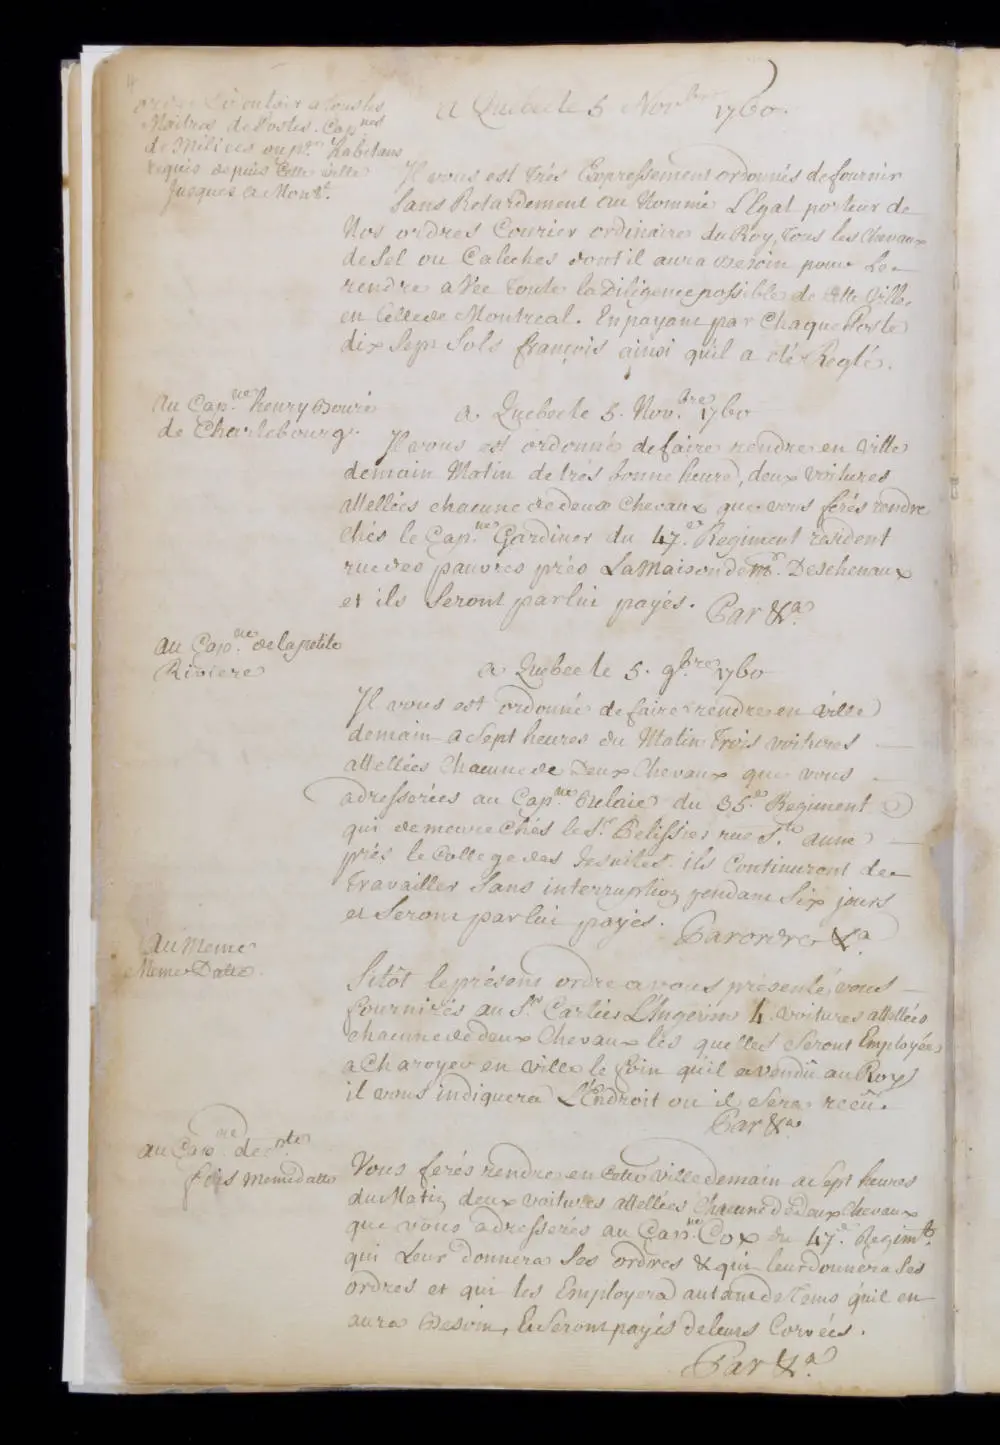 ordre Circulair a tous les
Maitres de Postes. Cap.nes
de Milices ou p.er habitans
requis depuis Cette ville
Jusques a Mont.l
a Quebec le 5 Nov.bre 1760.
Il vous est très Expressement ordonnés de fournir
Sans Retardement au Nommé L'Egal porteur de
Nos ordres Courier ordinaire du Roy, tous les Chevaux
de Sel ou Caleches dont il aura Besoin pour Se
rendre avec toute la Diligence possible de Cette Ville
en Celle de Montreal. En payant par Chaque Poste
dix Sept Sols françois ainsi qu'il a été Reglé.
au Cap.ne henry Bourée
de Charlebourg.
a Quebec le 5. Nov.bre 1760
Il vous est ordonné de faire rendre en Ville
demain Matin de très bonne heure, deux voitures
attellées chacune de deux Chevaux que vous ferés rendre
Chés le Cap.ne Gardiner du 47.e Regiment résident
rue des pauvres près La Maison de M.r Deschenaux
et ils Seront par lui payés. Par &.a
au Cap.ne de la petite
Riviere
a Quebec le 5. 9bre 1760
Il vous est ordonné de faire rendre en ville
demain a Sept heures du Matin Trois voitures
attellées Chacune de Deux Chevaux que vous
adresserées au Cap.ne du 35.e Regiment
qui demeure Chés le S.r Pelissier rue S.te anne
près le College des Jesuites. ils Continuront de
travailler Sans interruption pendant Six jours
et Seront par lui payés. Par ordre &.a
au Meme
Meme Datte.
Sitôt le présent ordre a vous présenté, vous
fournirés au S.r Carlier L'Ingerim 4. voitures attellées
chacune de deux Chevaux les quelles Seront Employées
a Charoyer en ville le foin qu'il a vendû au Roy
il vous indiquera L'Endroit ou il Sera recû.
Par &.a
au Cap.ne de S.te
foys meme datte
Vous ferés rendre en Cette ville demain a Sept heures
du Matin deux voitures attellées Chacune de deux Chevaux
que vous adresserés au Cap.ne Cox du 47.e Regim.t
qui Leur donnera Ses ordres & qui leur donnera Ses
ordres et qui les Employera autant de Tems qu'il en
aura Besoin, ils Seront payés de leurs Corvées.
Par &.a